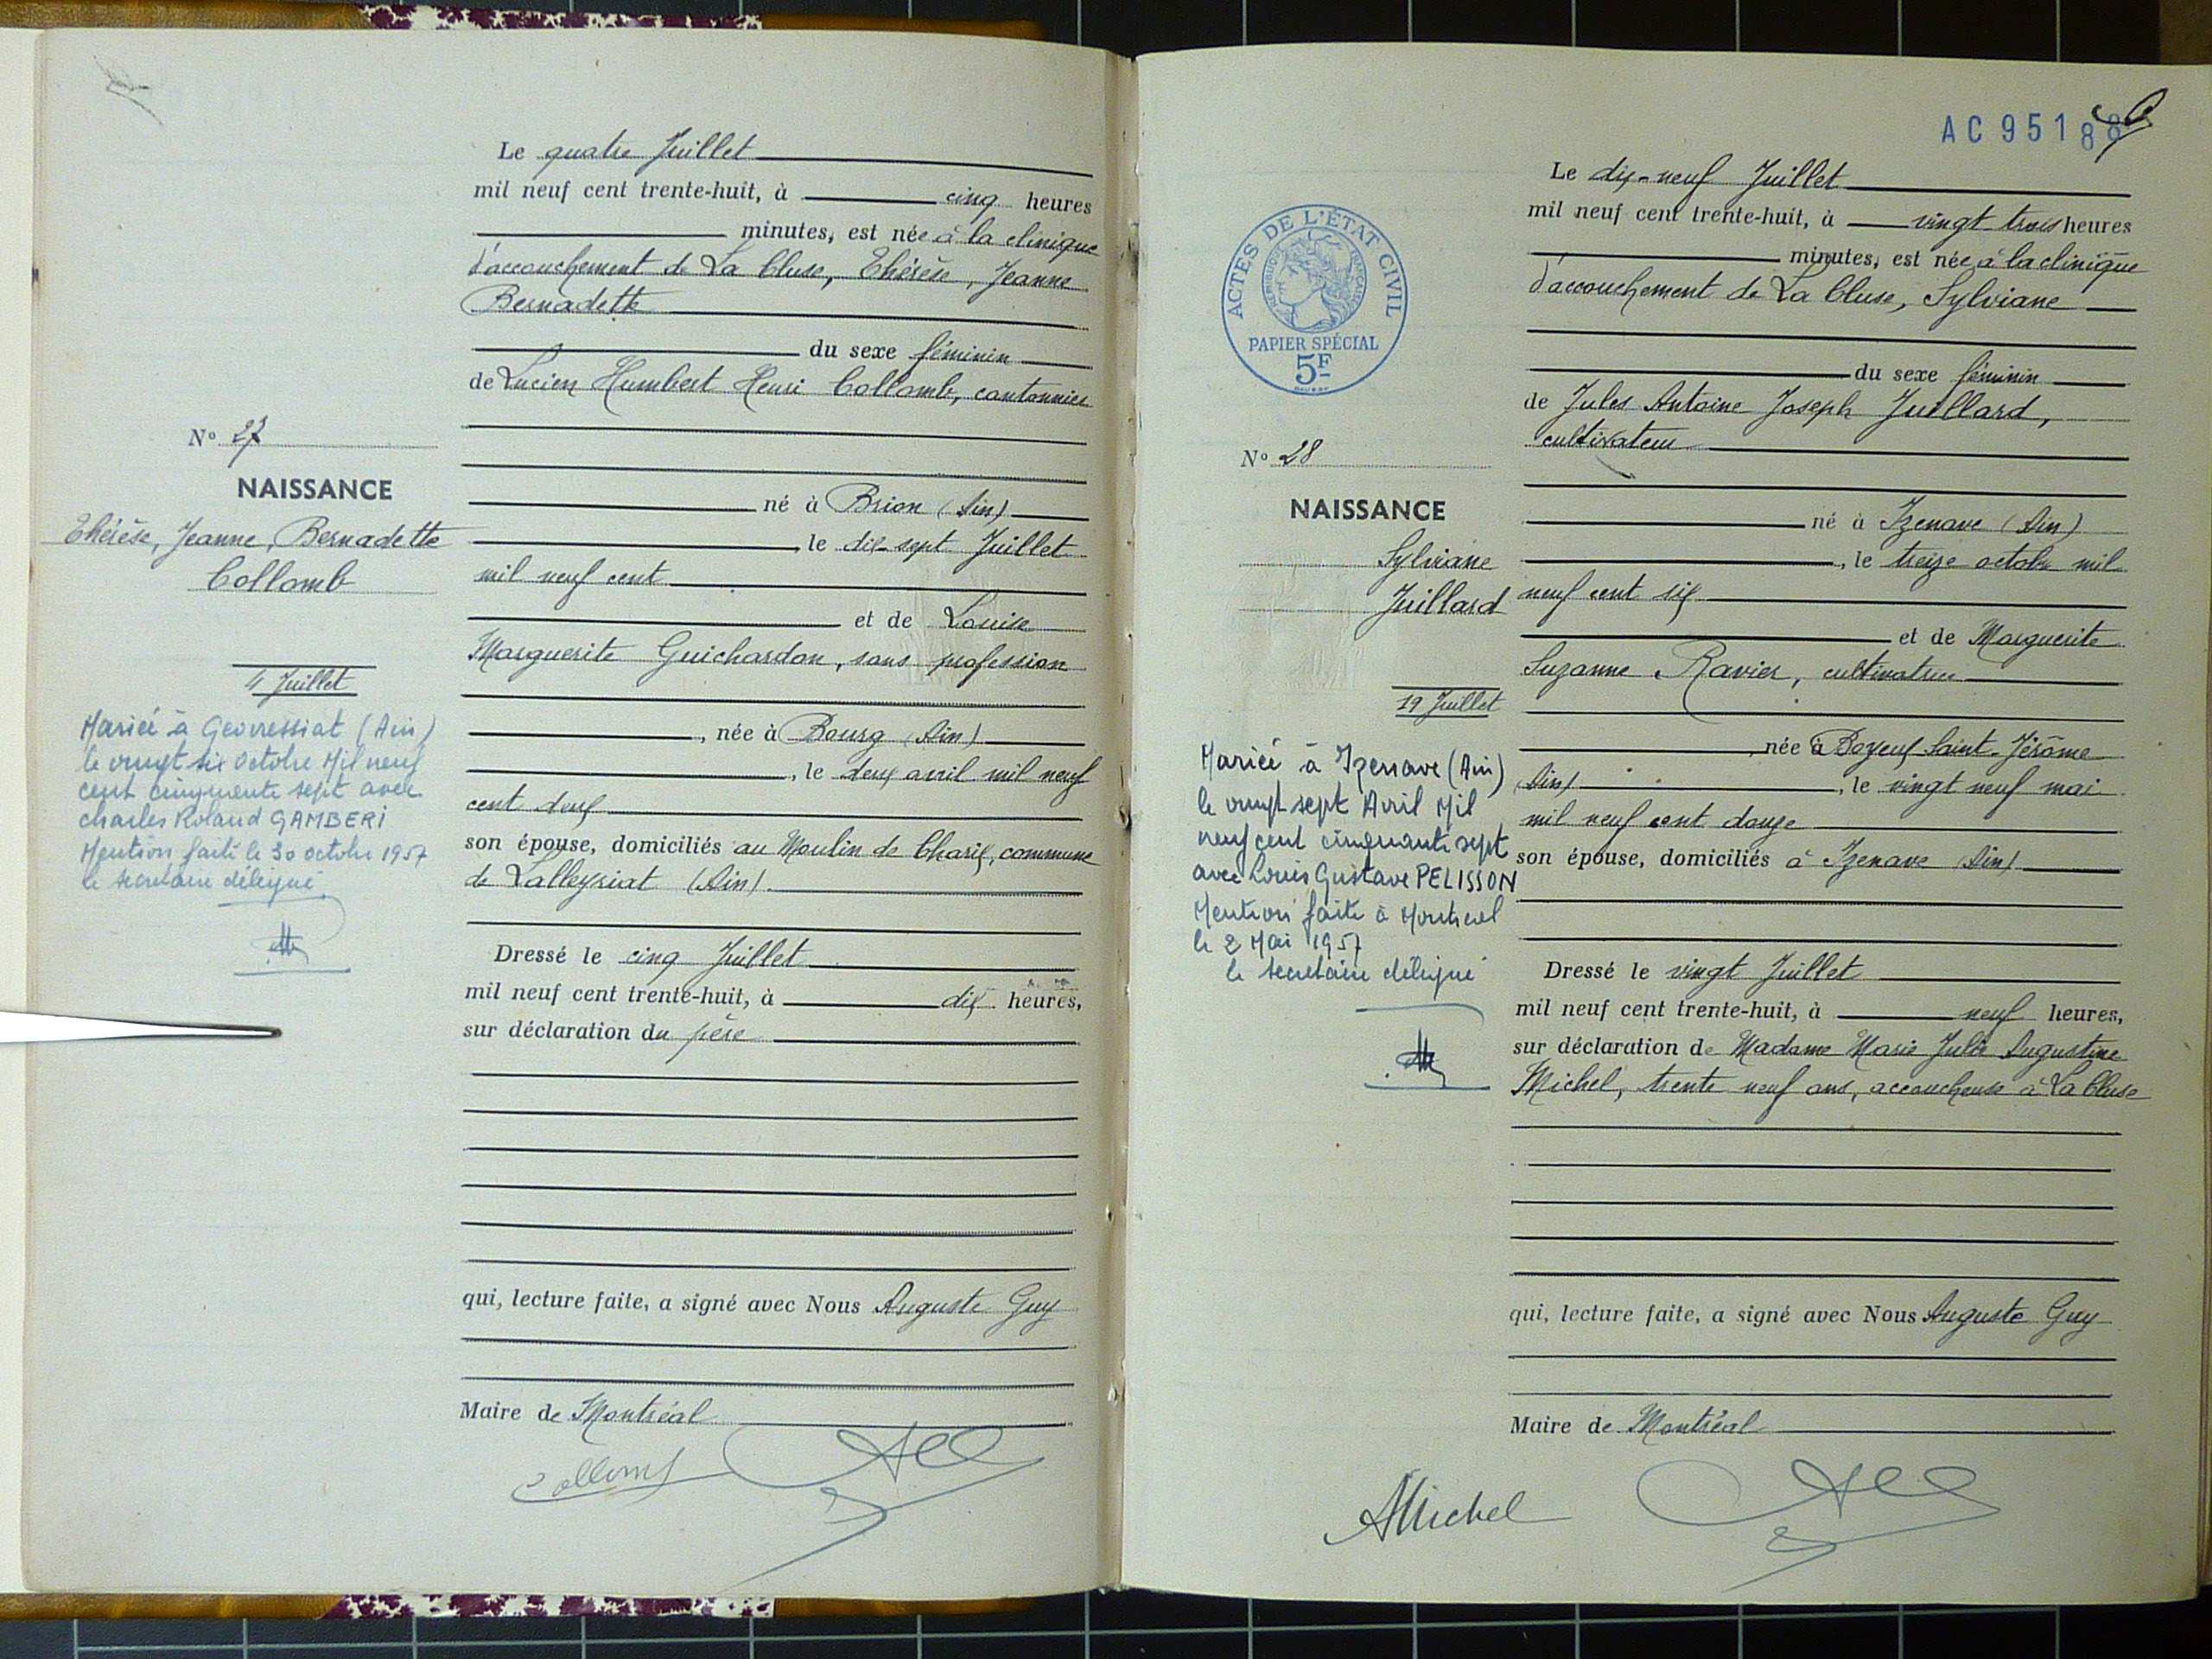 Le quatre Juillet
mil neuf cent trente-huit, à cinq heures
minutes, est née à la clinique
d'accouchement de La Cluse, Thérèse, Jeanne
Bernadette
du sexe féminin
de Lucien Humbert Henri Collomb, cantonnier
né à Brion (Ain)
, le dix-sept Juillet
mil neuf cent
et de Louise
Marguerite Guichardon, sans profession
, née à Bourg (Ain)
, le deux avril mil neuf
cent deux
son épouse, domiciliés au Moulin de Charix, commune
de Lalleyriat (Ain)
Dressé le cinq Juillet
mil neuf cent trente-huit, à dix heures,
sur déclaration du père
qui, lecture faite, a signé avec Nous Auguste Guy
Maire de Montréal
Collomb
N° 27
NAISSANCE
Thérèse, Jeanne, Bernadette
Collomb
4 Juillet
Mariée à Geovressiat (Ain)
le vingt six Octobre Mil neuf
cent cinquante sept avec
Charles Roland GAMBERI
Mention faite le 30 octobre 1957
le secretaire délégué
AC 95188
ACTES DE L'ÉTAT CIVIL
RÉPUBLIQUE FRANÇAISE
PAPIER SPÉCIAL
5F
N° 28
NAISSANCE
Sylviane
Juillard
19 Juillet
Mariée à Izenave (Ain)
le vingt sept Avril Mil
neuf cent cinquante sept
avec Louis Gustave PELISSON
Mention faite à Montreal
le 2 Mai 1957
le secretaire délégué
Le dix-neuf Juillet
mil neuf cent trente-huit, à vingt trois heures
minutes, est née à la clinique
d'accouchement de La Cluse, Sylviane
du sexe féminin
de Jules Antoine Joseph Juillard,
cultivateur
né à Izenave (Ain)
, le treize octobre mil
neuf cent six
et de Marguerite
Suzanne Ravier, cultivatrice
, née à Boyeux Saint-Jérôme
(Ain) , le vingt neuf mai
mil neuf cent douze
son épouse, domiciliés à Izenave (Ain)
Dressé le vingt Juillet
mil neuf cent trente-huit, à neuf heures,
sur déclaration de Madame Marie Julie Augustine
Michel, trente neuf ans, accoucheuse à La Cluse
qui, lecture faite, a signé avec Nous Auguste Guy
Maire de Montréal
AMichel